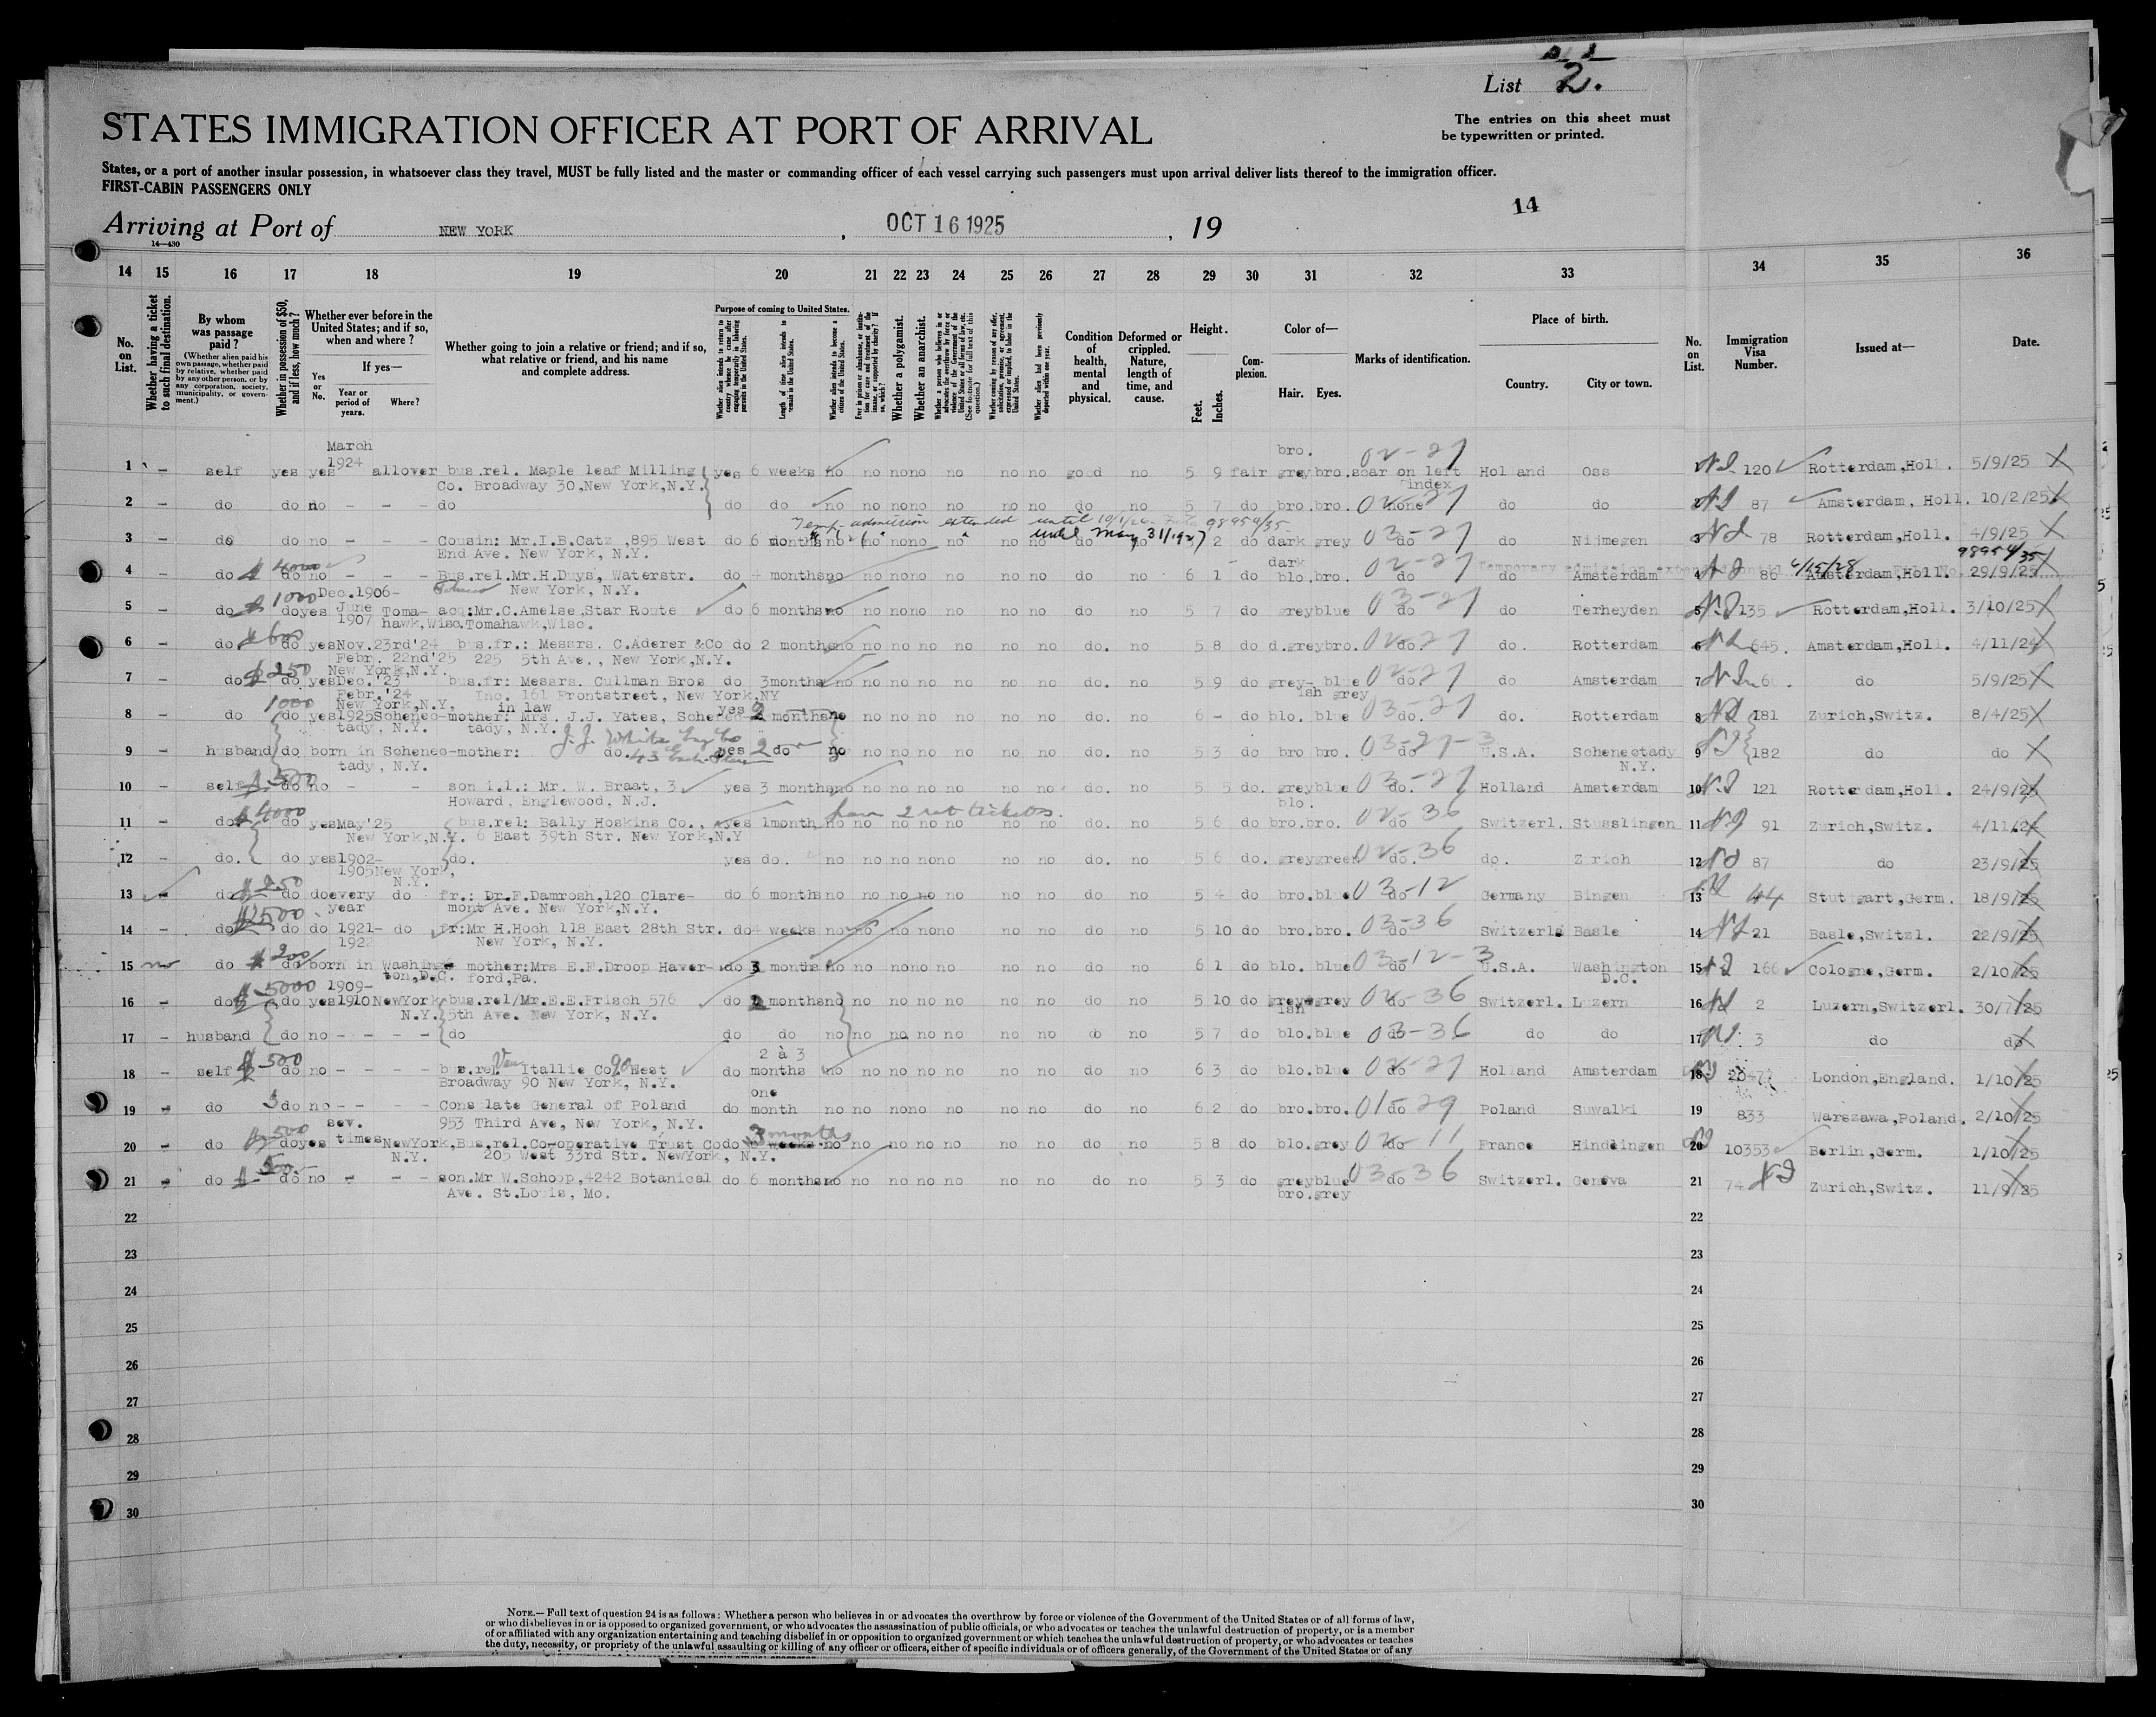 List 2.
The entries on this sheet must
be typewritten or printed.
STATES IMMIGRATION OFFICER AT PORT OF ARRIVAL
States, or a port of another insular possession, in whatsoever class they travel, MUST be fully listed and the master or commanding officer of each vessel carrying such passengers must upon arrival deliver lists thereof to the immigration officer.
FIRST-CABIN PASSENGERS ONLY
14
Arriving at Port of NEW YORK, OCT 16 1925, 19
14—430
14 15 16 17 18 19 20 21 22 23 24 25 26 27 28 29 30 31 32 33 34 35 36
No. on List.
Whether having a ticket to such final destination.
By whom was passage paid?
(Whether alien paid his own passage, whether paid by relative, whether paid by any other person, or by any corporation, society, municipality, or government.)
Whether in possession of $50, and if less, how much?
Whether ever before in the United States; and if so, when and where?
Yes or No.
If yes—
Year or period of years.
Where?
Whether going to join a relative or friend; and if so, what relative or friend, and his name and complete address.
Purpose of coming to United States.
Length of time alien intends to remain in the United States.
Whether alien intends to become a citizen of the United States.
Whether a polygamist.
Whether an anarchist.
Condition of health, mental and physical.
Deformed or crippled. Nature, length of time, and cause.
Height.
Feet. Inches.
Complexion.
Color of—
Hair. Eyes.
Marks of identification.
Place of birth.
Country. City or town.
No. on List.
Immigration Visa Number.
Issued at—
Date.
March bro. 02-27
1 – self yes yes 1924 allover bus.rel. Maple leaf Milling yes 6 weeks no no no no no no no good no 5 9 fair grey bro. scar on left Holland Oss 120 Rotterdam,Holl. 5/9/25
Co. Broadway 30,New York,N.Y. index
2 – do do no – – – do do do no no no no no no no do no 5 7 do bro. bro. none 02-27 do do 87 Amsterdam, Holl. 10/2/25
Temp. admission extended until 98954/35
until May 31/1927
3 – do do no – – – Cousin: Mr.I.B.Catz ,895 West do 6 months no no no no no no no do no 2 do dark grey do 03-27 do Nijmegen 3 78 Rotterdam,Holl. 4/9/25
End Ave. New York, N.Y.
98954/35
4 – do $ 4000 do no – – – Bus.rel.Mr.H.Duys, Waterstr. do 4 months no no no no no no no do no 6 1 do dark blo. bro. do 02-27 do Amsterdam 4 86 Amsterdam,Holl. 29/9/25
New York, N.Y.
5 – do $ 1000 do yes Dec.1906- June 1907 Tomahawk,Wisc. acq:Mr.C.Amelse,Star Route do 6 months no no no no no no no do no 5 7 do grey blue do 03-27 do Terheyden 5 135 Rotterdam,Holl. 3/10/25
Tomahawk,Wisc.
6 – do do yes Nov.23rd'24 bus.fr.: Messrs. C.Aderer &Co do 2 months no no no no no no no do. no 5 8 do d.grey bro. do. 02-27 do. Rotterdam 6 645. Amsterdam,Holl. 4/11/24
Febr. 22nd'25 225 5th Ave., New York,N.Y.
New York,N.Y.
7 – do $250 do yes Dec.'23 bus.fr: Messrs. Cullman Bros do 3months no no no no no no no do. no 5 9 do grey- blue do. 02-27 do Amsterdam 7 6 do 5/9/25
Febr.'24 Inc. 161 Frontstreet, New York,NY ish grey
New York,N.Y, in law yes
8 – do 1000 do yes 1925 Schenec- mother: Mrs. J.J. Yates, Schenec- 2 months no no no no no no no do. no 6 – do blo. blue do. 03-27 do. Rotterdam 8 181 Zurich,Switz. 8/4/25
tady, N.Y. tady, N.Y.
9 – husband do born in Schenec- mother: do. yes 2 do no no no no no no no do. no 5 3 do bro bro. do 03-27-3 U.S.A. Schenectady 9 182 do do
tady, N.Y. N.Y.
10 – self $ 500 do no – – son i.l.: Mr. W. Braat, 3 yes 3 months no no no no no no no do. no 5 5 do. grey blue do. 03-27 Holland Amsterdam 10 121 Rotterdam,Holl. 24/9/25
Howard, Englewood, N.J. blo.
have 2 ret tickets.
11 – do $ 4000 do yes May'25 bus.rel: Bally Hoskins Co., yes 1month no no no no no no no do. no 5 6 do bro. bro. do 02-36 Switzerl. Stusslingen 11 91 Zurich,Switz. 4/11/24
New York,N.Y. 6 East 39th Str. New York,N.Y
12 – do. do yes 1902- do. yes do. no no no no no no no do. no 5 6 do. grey green do. 02-36 do. Zurich 12 87 do 23/9/25
1905 New York, N.Y.
13 – do $250 do do every year do fr.: Dr.F.Damrosh,120 Clare- do 6 months no no no no no no no do no 5 4 do bro. blue do 03-12 Germany Bingen 13 44 Stuttgart,Germ. 18/9/25
mont Ave. New York,N.Y.
14 – do $2500 do do 1921- do fr:Mr H.Hoch 118 East 28th Str. do 4 weeks no no no no no no no do no 5 10 do bro. bro. do 03-36 Switzerl Basle 14 21 Basle,Switzl. 22/9/25
1922 New York, N.Y.
15 no do $200 do born in Washing- mother:Mrs E.F.Droop Haver- do 3 months no no no no no no no do no 6 1 do blo. blue do 03-12-3 U.S.A. Washington 15 166 Cologne,Germ. 2/10/25
ton,D.C. ford,Pa. D.C.
16 – do $ 5000 do yes 1909- 1910 NewYork N.Y. bus.rel/Mr.E.E.Frisch 576 do 2 months no no no no no no no do no 5 10 do greyish grey do 02-36 Switzerl. Luzern 16 2 Luzern,Switzerl. 30/7/25
5th Ave. New York, N.Y.
17 – husband do no – – – – do do do no no no no no no no do no 5 7 do blo. blue do 03-36 do do 17 3 do do
18 – self $ 500 do no – – – – bus.rel. Van Itallie Co. 90 West do 2 à 3 months no no no no no no no do no 6 3 do blo. blue do 02-27 Holland Amsterdam 18 2047 London,England. 1/10/25
Broadway 90 New York, N.Y.
19 – do do no – – – – Consulate General of Poland do one month no no no no no no no do no 6 2 do bro. bro. do 015-29 Poland Suwalki 19 833 Warszawa,Poland. 2/10/25
953 Third Ave, New York, N.Y.
20 – do $500 do yes sev. times NewYork, N.Y. Bus.rel.Co-operative Trust Co do 3 months weeks no no no no no no no do no 5 8 do blo. grey do 02-11 France Hindlingen 20 10353 Berlin,Germ. 1/10/25
205 West 33rd Str. NewYork, N.Y.
21 – do $ 500.– do no – – – son.Mr W.Schoop,4242 Botanical do 6 months no no no no no no no do no 5 3 do grey blue do 03-36 Switzerl. Geneva 21 74 Zurich,Switz. 11/9/25
Ave. St.Louis, Mo. bro. grey
22 22
23 23
24 24
25 25
26 26
27 27
28 28
29 29
30 30
NOTE.—Full text of question 24 is as follows: Whether a person who believes in or advocates the overthrow by force or violence of the Government of the United States or of all forms of law,
or who disbelieves in or is opposed to organized government, or who advocates the assassination of public officials, or who advocates or teaches the unlawful destruction of property, or is a member
of or affiliated with any organization entertaining and teaching disbelief in or opposition to organized government or which teaches the unlawful destruction of property, or who advocates or teaches
the duty, necessity, or propriety of the unlawful assaulting or killing of any officer or officers, either of specific individuals or of officers generally, of the Government of the United States or of any